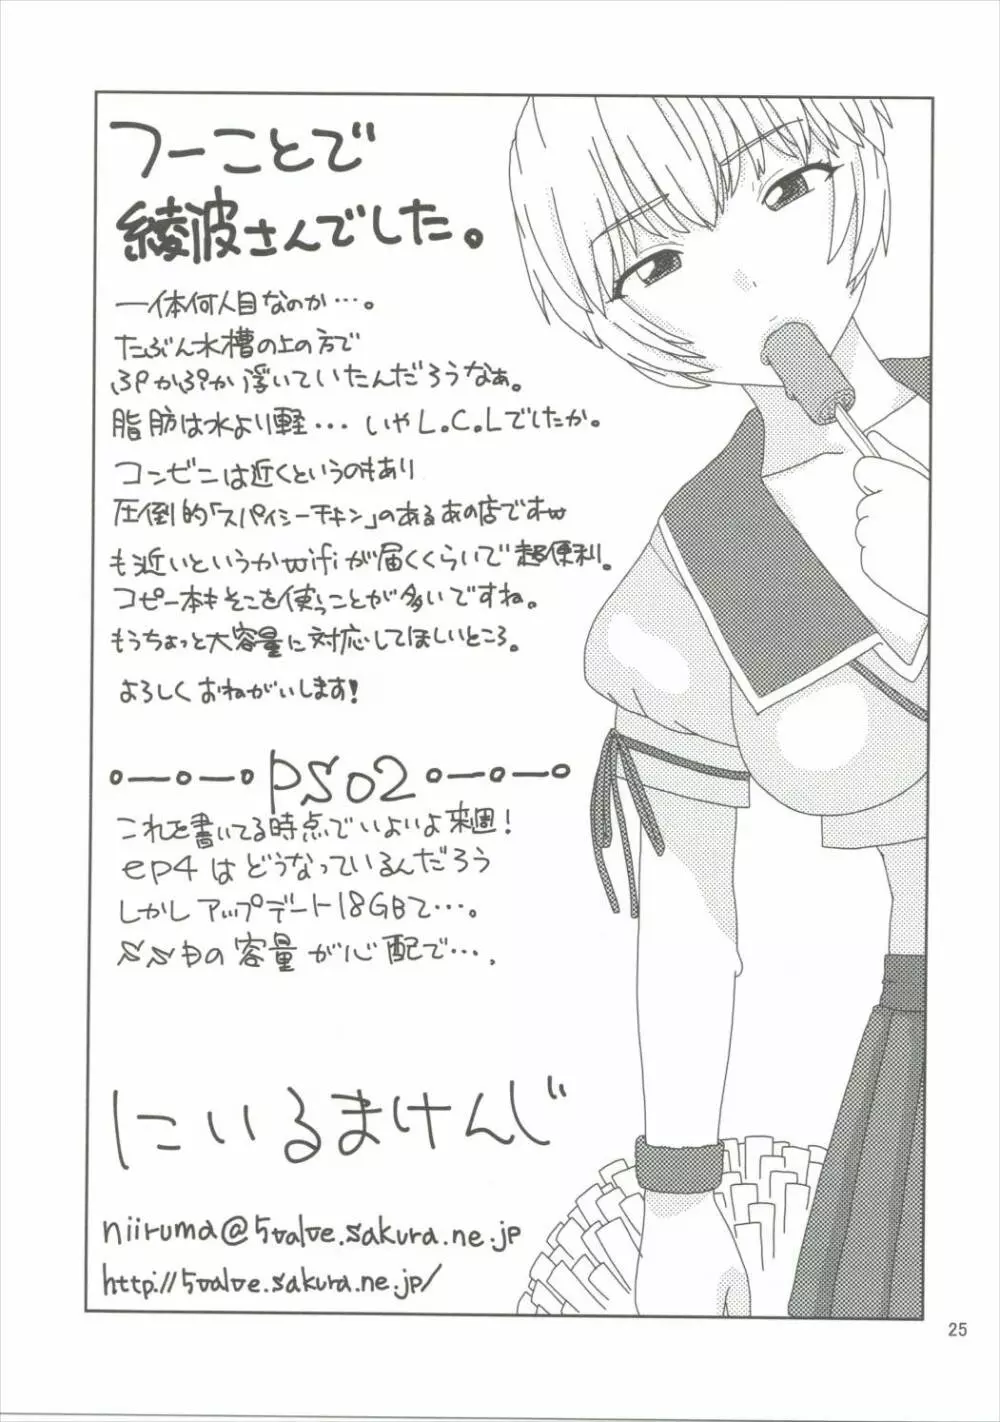 フーことで
綾波さんでした。
一体何人目なのか…。
たぶん水槽の上の方で
ぷかぷか浮いていたんだろうなぁ。
脂肪は水より軽…いやL.C.Lでしたか。
コンビニは近くというのもあり
圧倒的「スパイシーチキン」のあるあの店ですw
も近いというかwifiが届くくらいで超便利。
コピー本もそこを使うことが多いですね。
もうちょっと大容量に対応してほしいところ。
よろしくおねがいします!
PSO2
これを書いてる時点でいよいよ来週!
ep4はどうなっているんだろう
しかしアップデート18GBて…。
SSDの容量が心配で….
にいるまけんじ
niiruma@5valve.sakura.ne.jp
http://5valve.sakura.ne.jp/
25